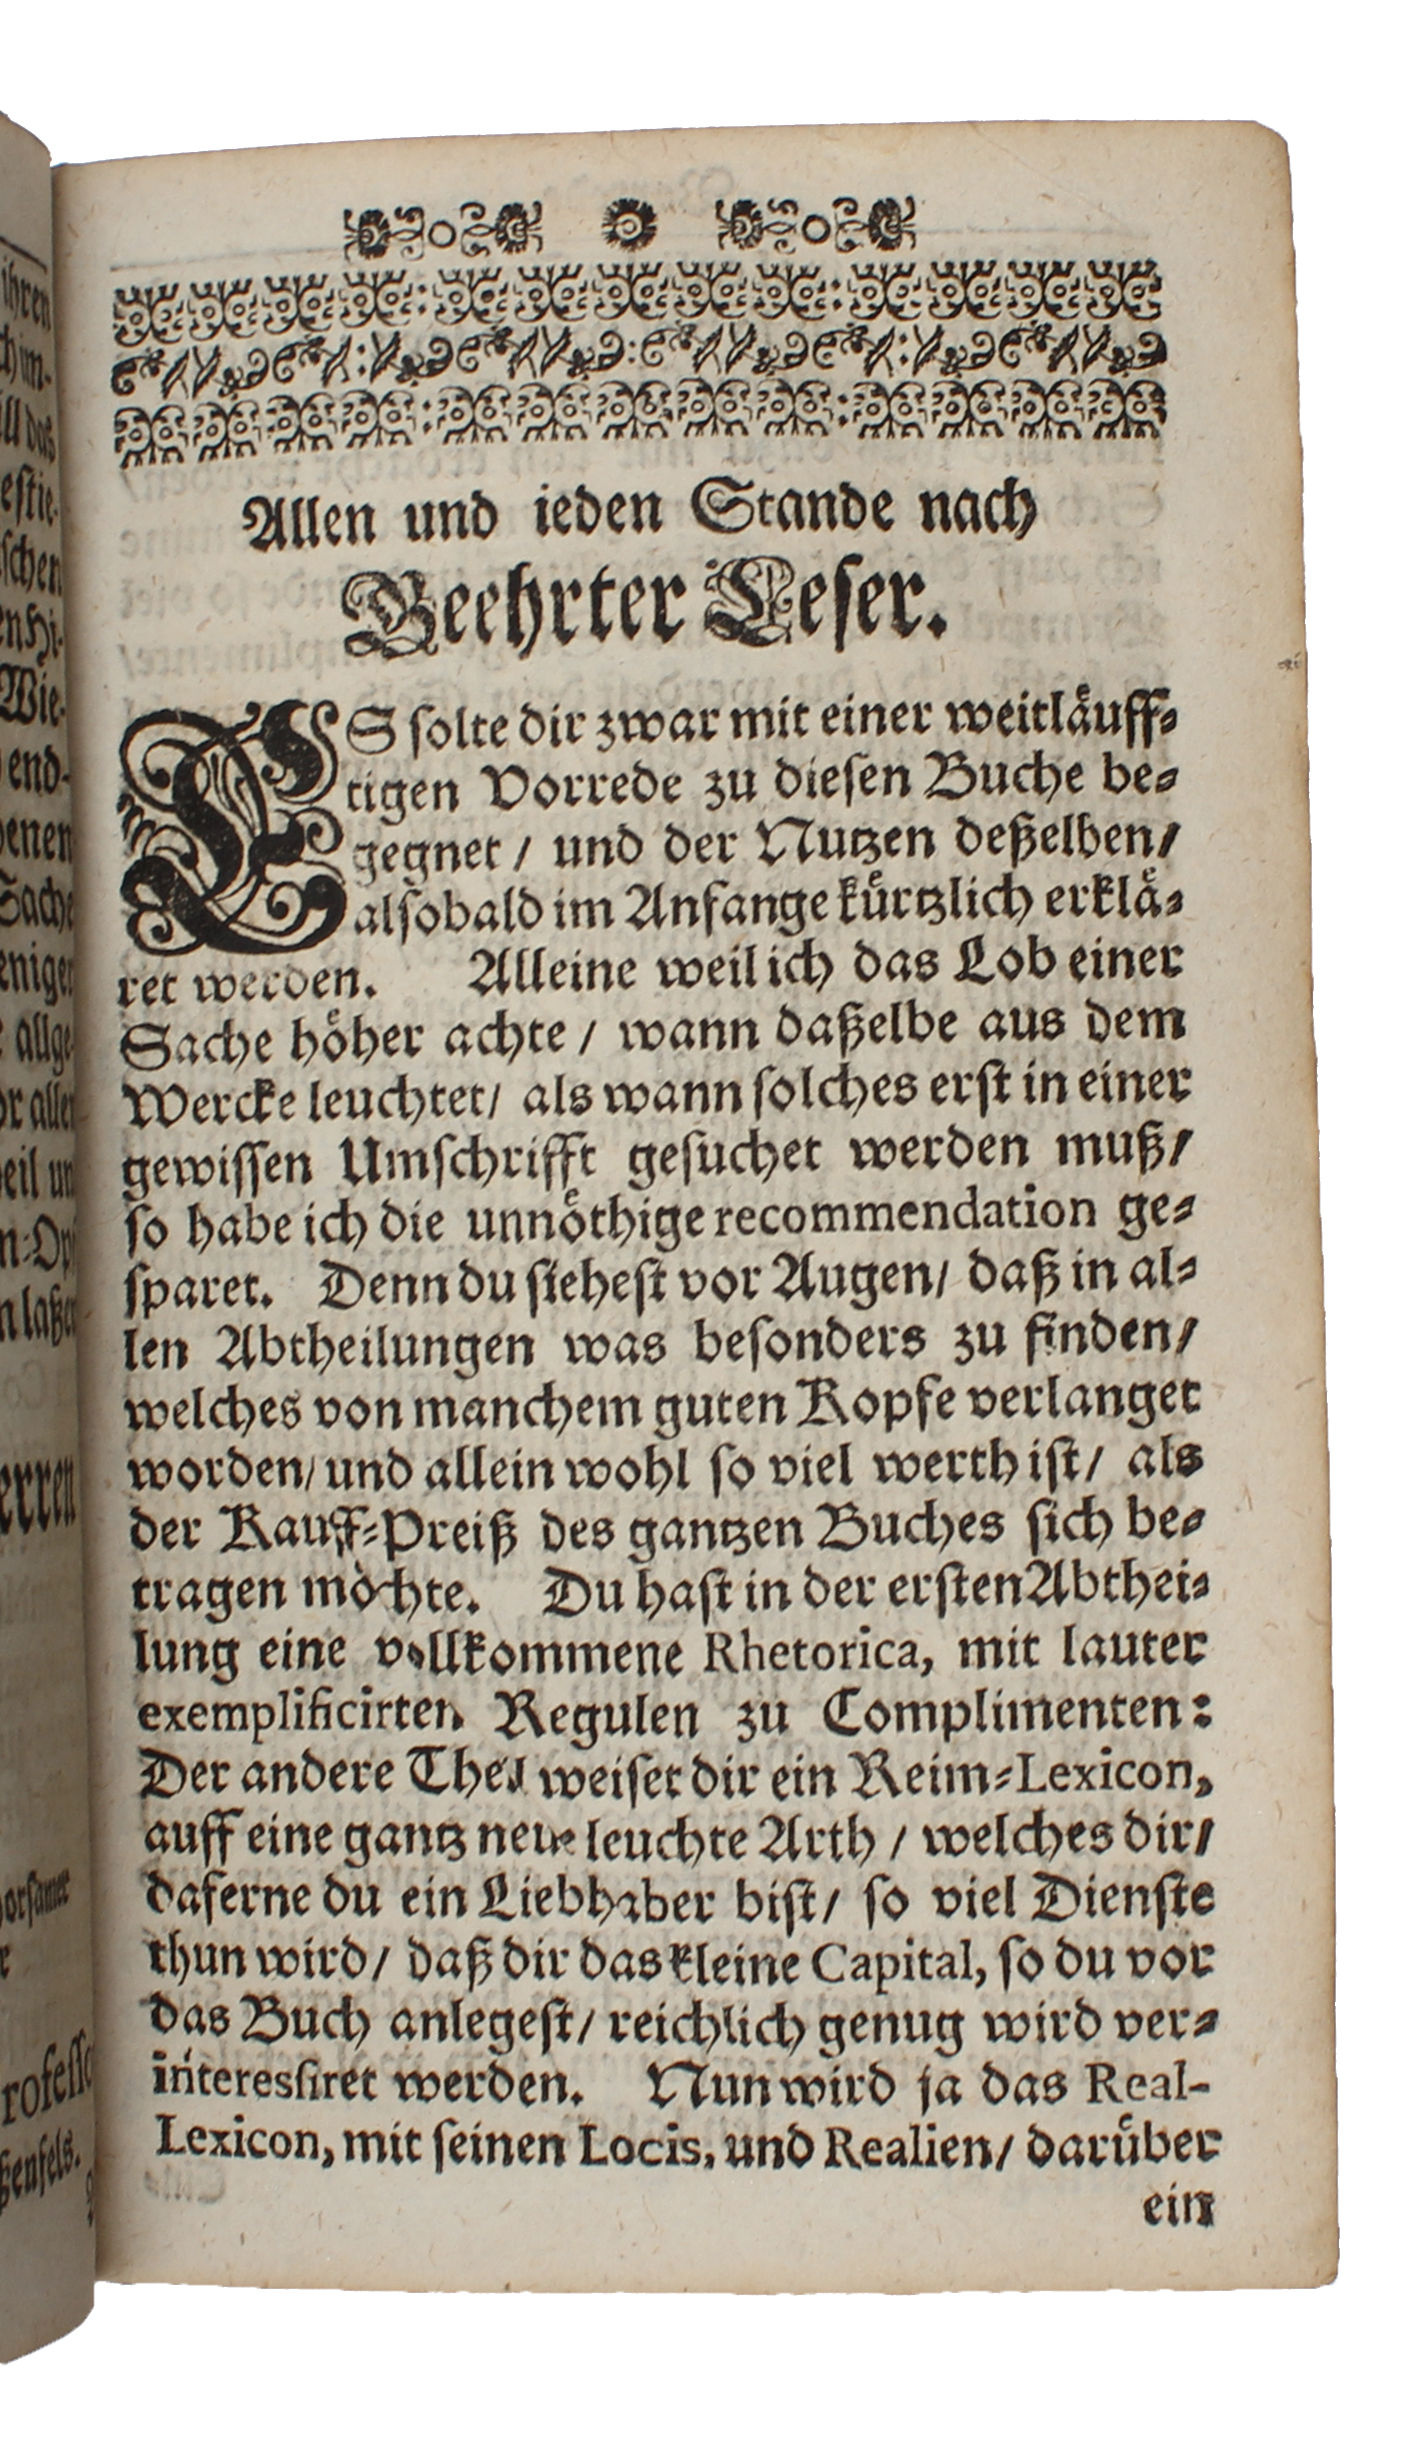 Allen und ieden Stande nach
Geehrter Leser.
ES solte dir zwar mit einer weitlaͤuff⸗
tigen Vorrede zu diesen Buche be⸗
gegnet / und der Nutzen deßelben /
alsobald im Anfange kuͤrtzlich erklaͤ⸗
ret werden. Alleine weil ich das Lob einer
Sache hoͤher achte / wann daßelbe aus dem
Wercke leuchtet / als wann solches erst in einer
gewissen Umschrifft gesuchet werden muß /
so habe ich die unnoͤthige recommendation ge⸗
sparet. Denn du siehest vor Augen / daß in al⸗
len Abtheilungen was besonders zu finden /
welches von manchem guten Kopfe verlanget
worden / und allein wohl so viel werth ist / als
der Kauff⸗Preiß des gantzen Buches sich be⸗
tragen moͤchte. Du hast in der ersten Abthei⸗
lung eine vollkommene Rhetorica, mit lauter
exemplificirten Regulen zu Complimenten:
Der andere Theil weiset dir ein Reim⸗Lexicon,
auff eine gantz neue leuchte Arth / welches dir /
daferne du ein Liebhaber bist / so viel Dienste
thun wird / daß dir das kleine Capital, so du vor
das Buch anlegest / reichlich genug wird ver⸗
interessiret werden. Nun wird ja das Real-
Lexicon, mit seinen Locis, und Realien / daruͤber
ein
ihren
das
estie⸗
schen
Wie⸗
end⸗
Sache
allge
erren
ßenfels.